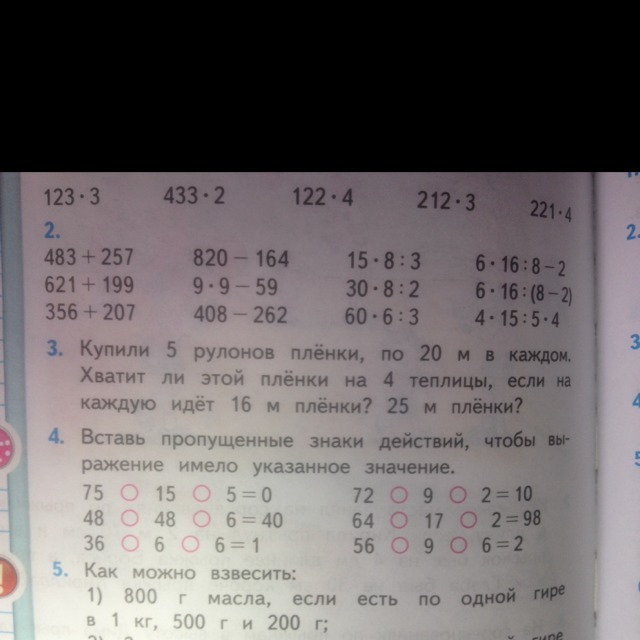 123·3 433·2 122·4 212·3 221·4
2.
483+257 820−164 15·8:3 6·16:8−2
621+199 9·9−59 30·8:2 6·16:(8−2)
356+207 408−262 60·6:3 4·15:5·4
3. Купили 5 рулонов плёнки, по 20 м в каждом.
Хватит ли этой плёнки на 4 теплицы, если на
каждую идёт 16 м плёнки? 25 м плёнки?
4. Вставь пропущенные знаки действий, чтобы вы-
ражение имело указанное значение.
75 ○ 15 ○ 5=0 72 ○ 9 ○ 2=10
48 ○ 48 ○ 6=40 64 ○ 17 ○ 2=98
36 ○ 6 ○ 6=1 56 ○ 9 ○ 6=2
5. Как можно взвесить:
1) 800 г масла, если есть по одной гире
в 1 кг, 500 г и 200 г;